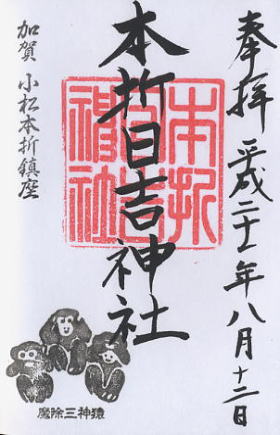 奉拝 平成二十一年八月十二日
本折日吉神社
本折
日吉
神社
加賀 小松本折鎮座
魔除三神猿